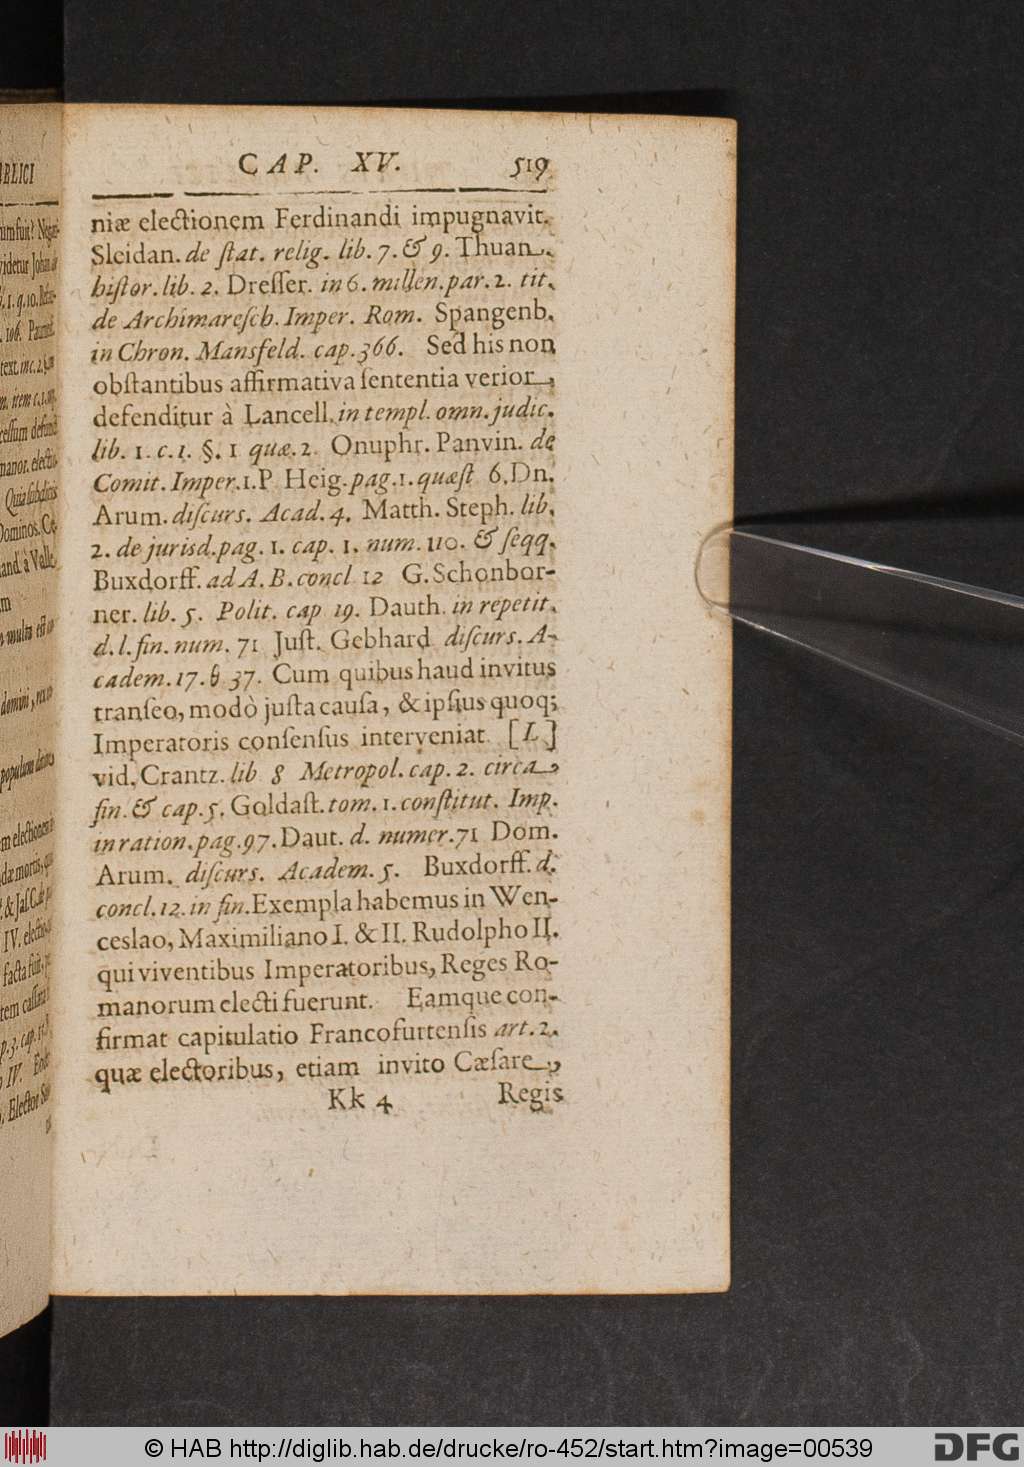 CAP. XV. 519
niæ electionem Ferdinandi impugnavit.
Sleidan. de ſtat. relig. lib. 7. & 9. Thuan.
hiſtor. lib. 2. Dreſſer. in 6. millen. par. 2. tit.
de Archimareſch. Imper. Rom. Spangenb.
in Chron. Mansfeld. cap. 366. Sed his non
obſtantibus affirmativa ſententia verior,
defenditur à Lancell. in templ. omn. judic.
lib. 1. c. 1. §. 1 quæ. 2. Onuphr. Panvin. de
Comit. Imper. 1. P. Heig. pag. 1. quæſt 6. Dn.
Arum. diſcurs. Acad. 4. Matth. Steph. lib.
2. de jurisd. pag. 1. cap. 1. num. 110. & ſeqq.
Buxdorff. ad A. B. concl 12 G. Schonbor-
ner. lib. 5. Polit. cap 19. Dauth. in repetit.
d. l. fin. num. 71 Juſt. Gebhard diſcurs. A-
cadem. 17. § 37. Cum quibus haud invitus
tranſeo, modò juſta cauſa, & ipſius quoq;
Imperatoris conſenſus interveniat. [L]
vid. Crantz. lib 8 Metropol. cap. 2. circa,
fin. & cap. 5. Goldaſt. tom. 1. conſtitut. Imp.
in ration. pag. 97. Daut. d. numer. 71 Dom.
Arum. diſcurs. Academ. 5. Buxdorff. d.
concl. 12. in fin. Exempla habemus in Wen-
ceslao, Maximiliano I. & II. Rudolpho II.
qui viventibus Imperatoribus, Reges Ro-
manorum electi fuerunt. Eamque con-
firmat capitulatio Francofurtenſis art. 2.
quæ electoribus, etiam invito Cæſare,
Kk 4 Regis
© HAB http://diglib.hab.de/drucke/ro-452/start.htm?image=00539
DFG